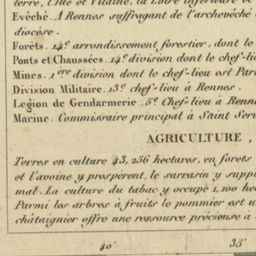 terre, l'Ille et Vilaine, la Loire Inférieure
Evêché. A Rennes suffragant de l'archevêché
diocèse.
Forêts. 14e arrondissement forestier, dont le
Ponts et Chaussées. 14e division dont le chef-lie
Mines. 1ère division dont le chef-lieu est Par
Division Militaire. 13e chef-lieu à Rennes.
Legion de Gendarmerie. 5e Chef-lieu à Renn
Marine. Commissaire principal à Saint Serv
AGRICULTURE,
Terres en culture 43,256 hectares, en forêts
et l'avoine y prospèrent, le sarrazin y supp
mat. La culture du tabac y occupe 1,100 hec
Parmi les arbres à fruits le pommier est u
châtaignier offre une ressource précieuse à
40'
35'